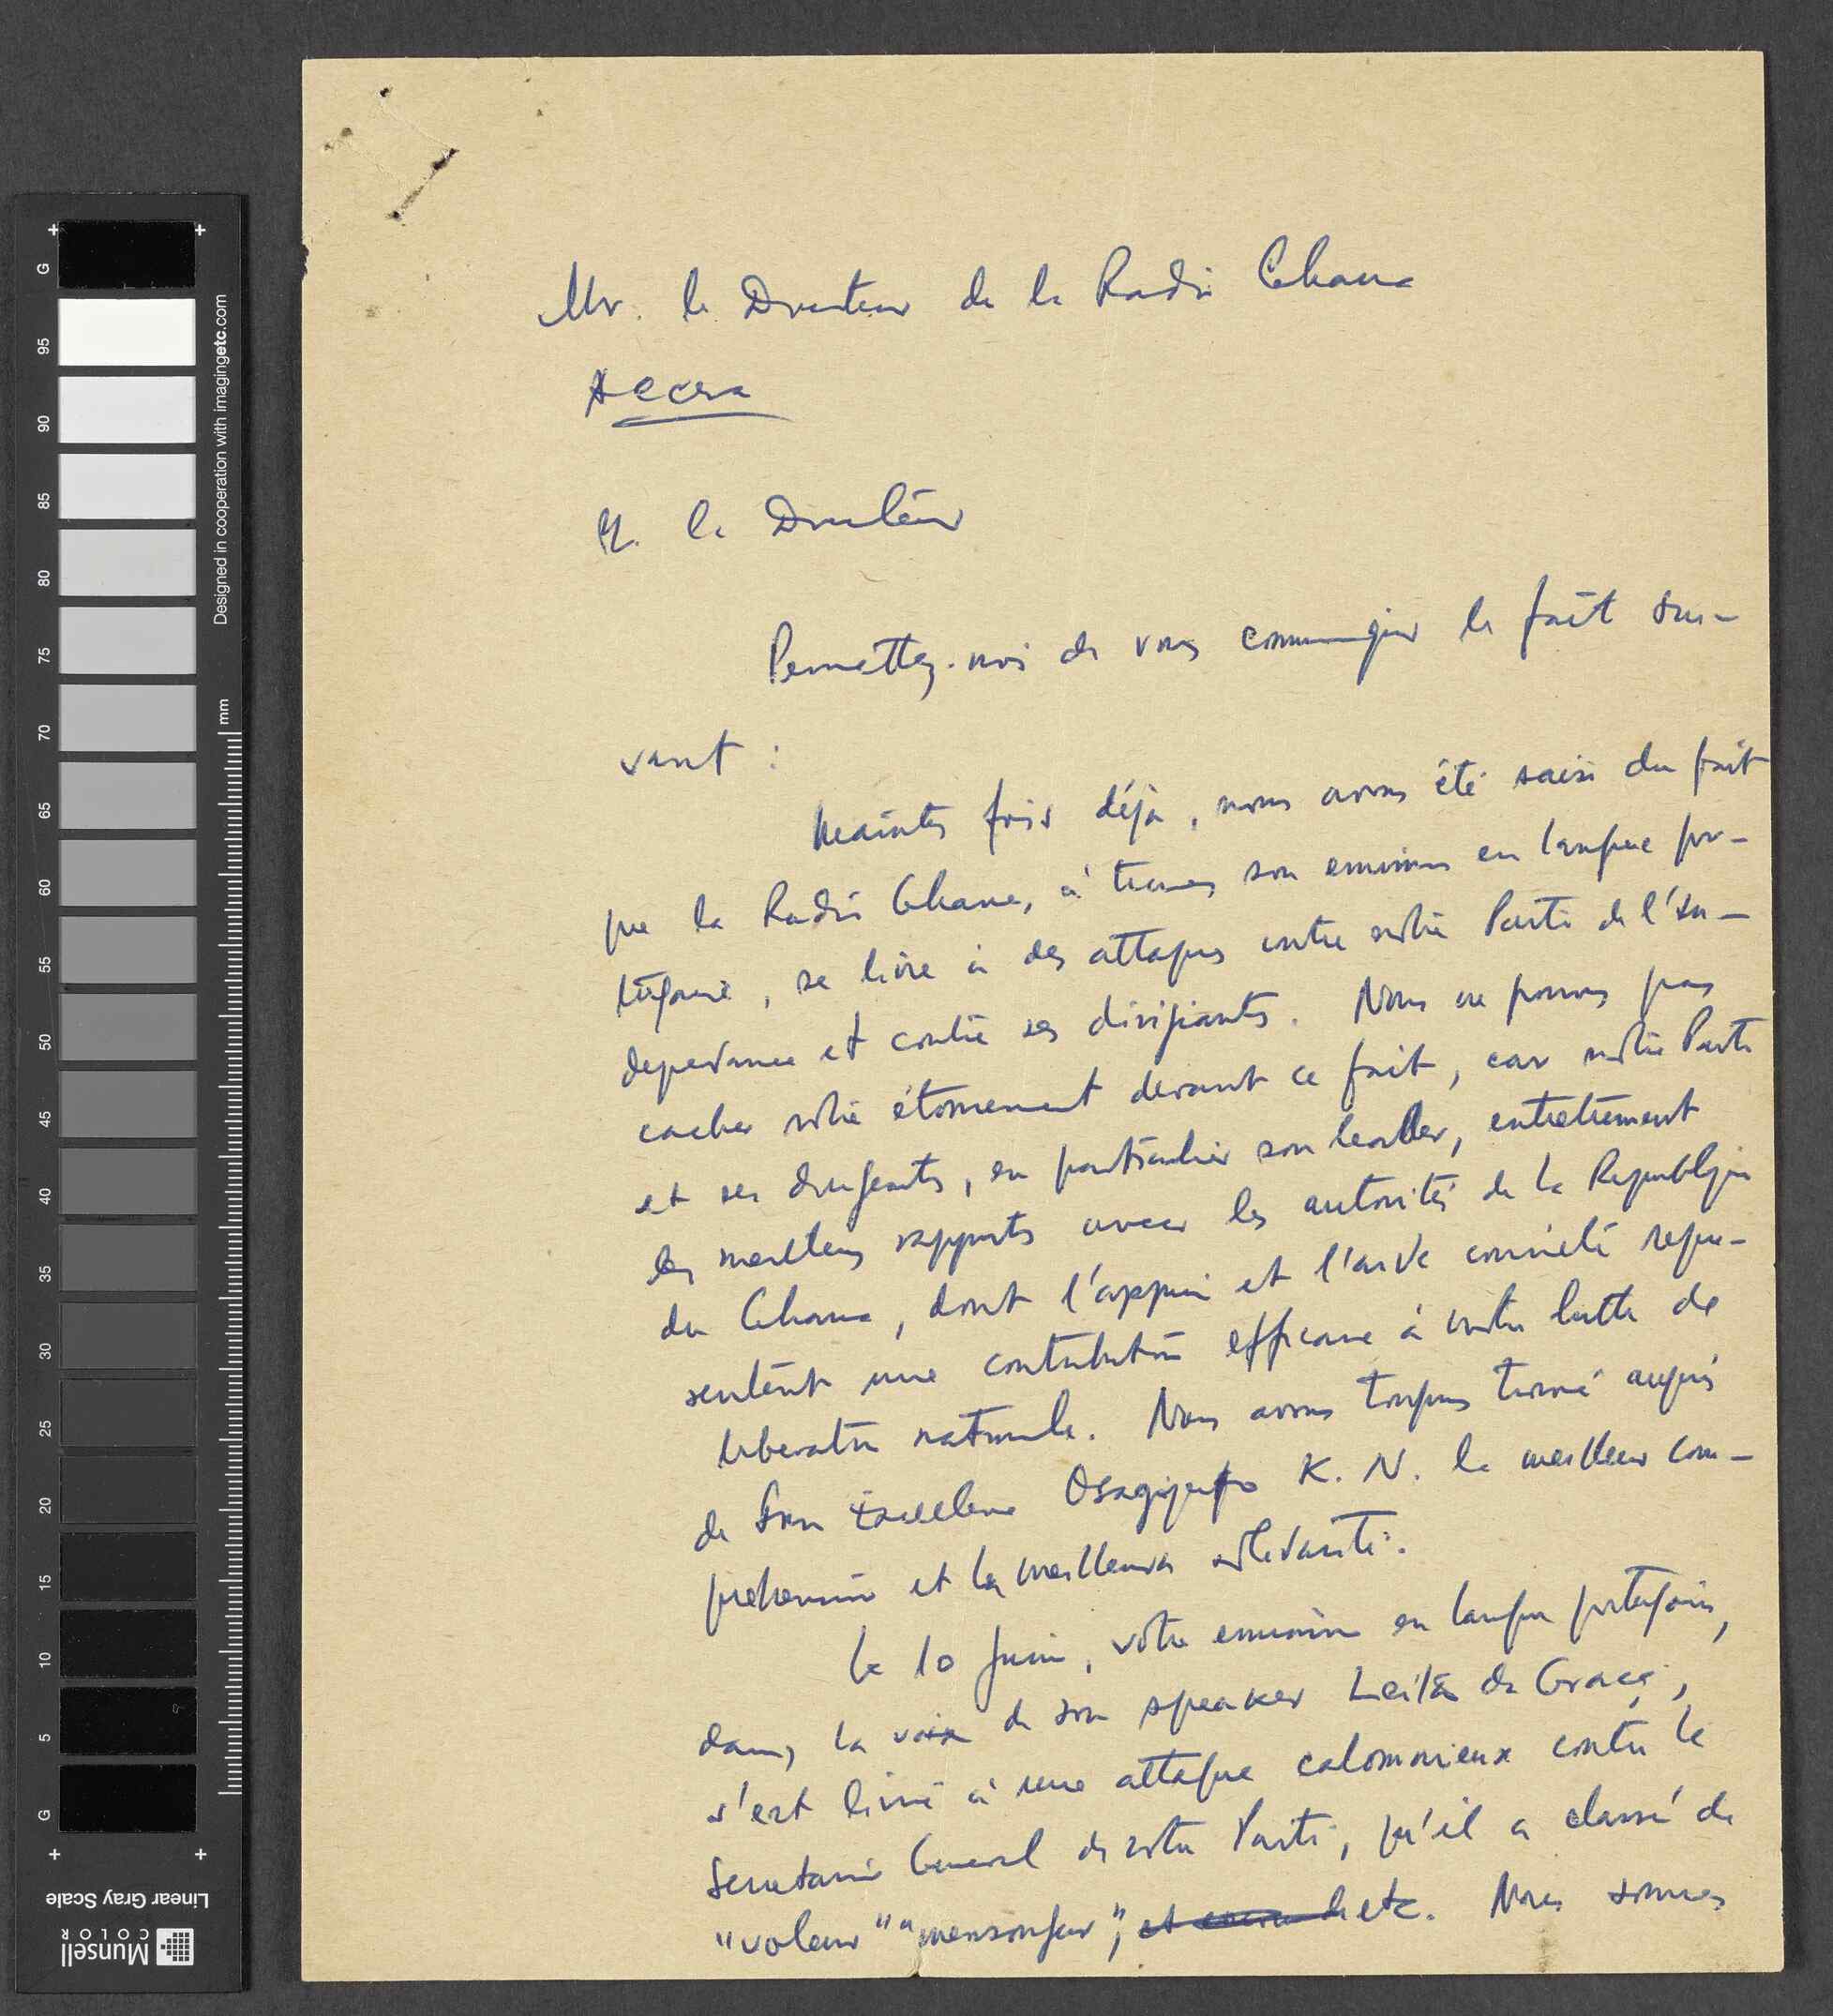 Mr. le Directeur de la Radio Ghana
Accra
M. le Directeur
Permettez-moi de vous communiquer le fait sui-
vant :
Maintes fois déjà, nous avons été saisi du fait
que la Radio Ghana, à travers son emission en langue por-
tugaise, se livre à des attaques contre notre Parti de l'In-
dependance et contre ses dirigeants. Nous ne pouvons pas
cacher notre étonnement devant ce fait, car notre Parti
et ses dirigeants, en particulier son leader, entretiennent
les meilleurs rapports avec les autorités de la Republique
du Ghana, dont l'appui et l'aide concrète repré-
sentent une contribution efficace à notre lutte de
liberation nationale. Nous avons toujours trouvé auprès
de Son Excellence Osagyefo K. N. la meilleur com-
prehension et la meilleure solidarité.
Le 10 Juin, votre emission en langue portugaise,
dans la voix de son speaker Leitão da Graça,
s'est livré à une attaque calomnieux contre le
Secretaire General de notre Parti, qu'il a classé de
"voleur" "mensonger", etc. Nous sommes
G 95 90 85 80 75 70 65 60 55 50 45 40 35 30 25 20 15 10 5 G
mm
Designed in cooperation with imagingetc.com
Linear Gray Scale
Munsell
COLOR